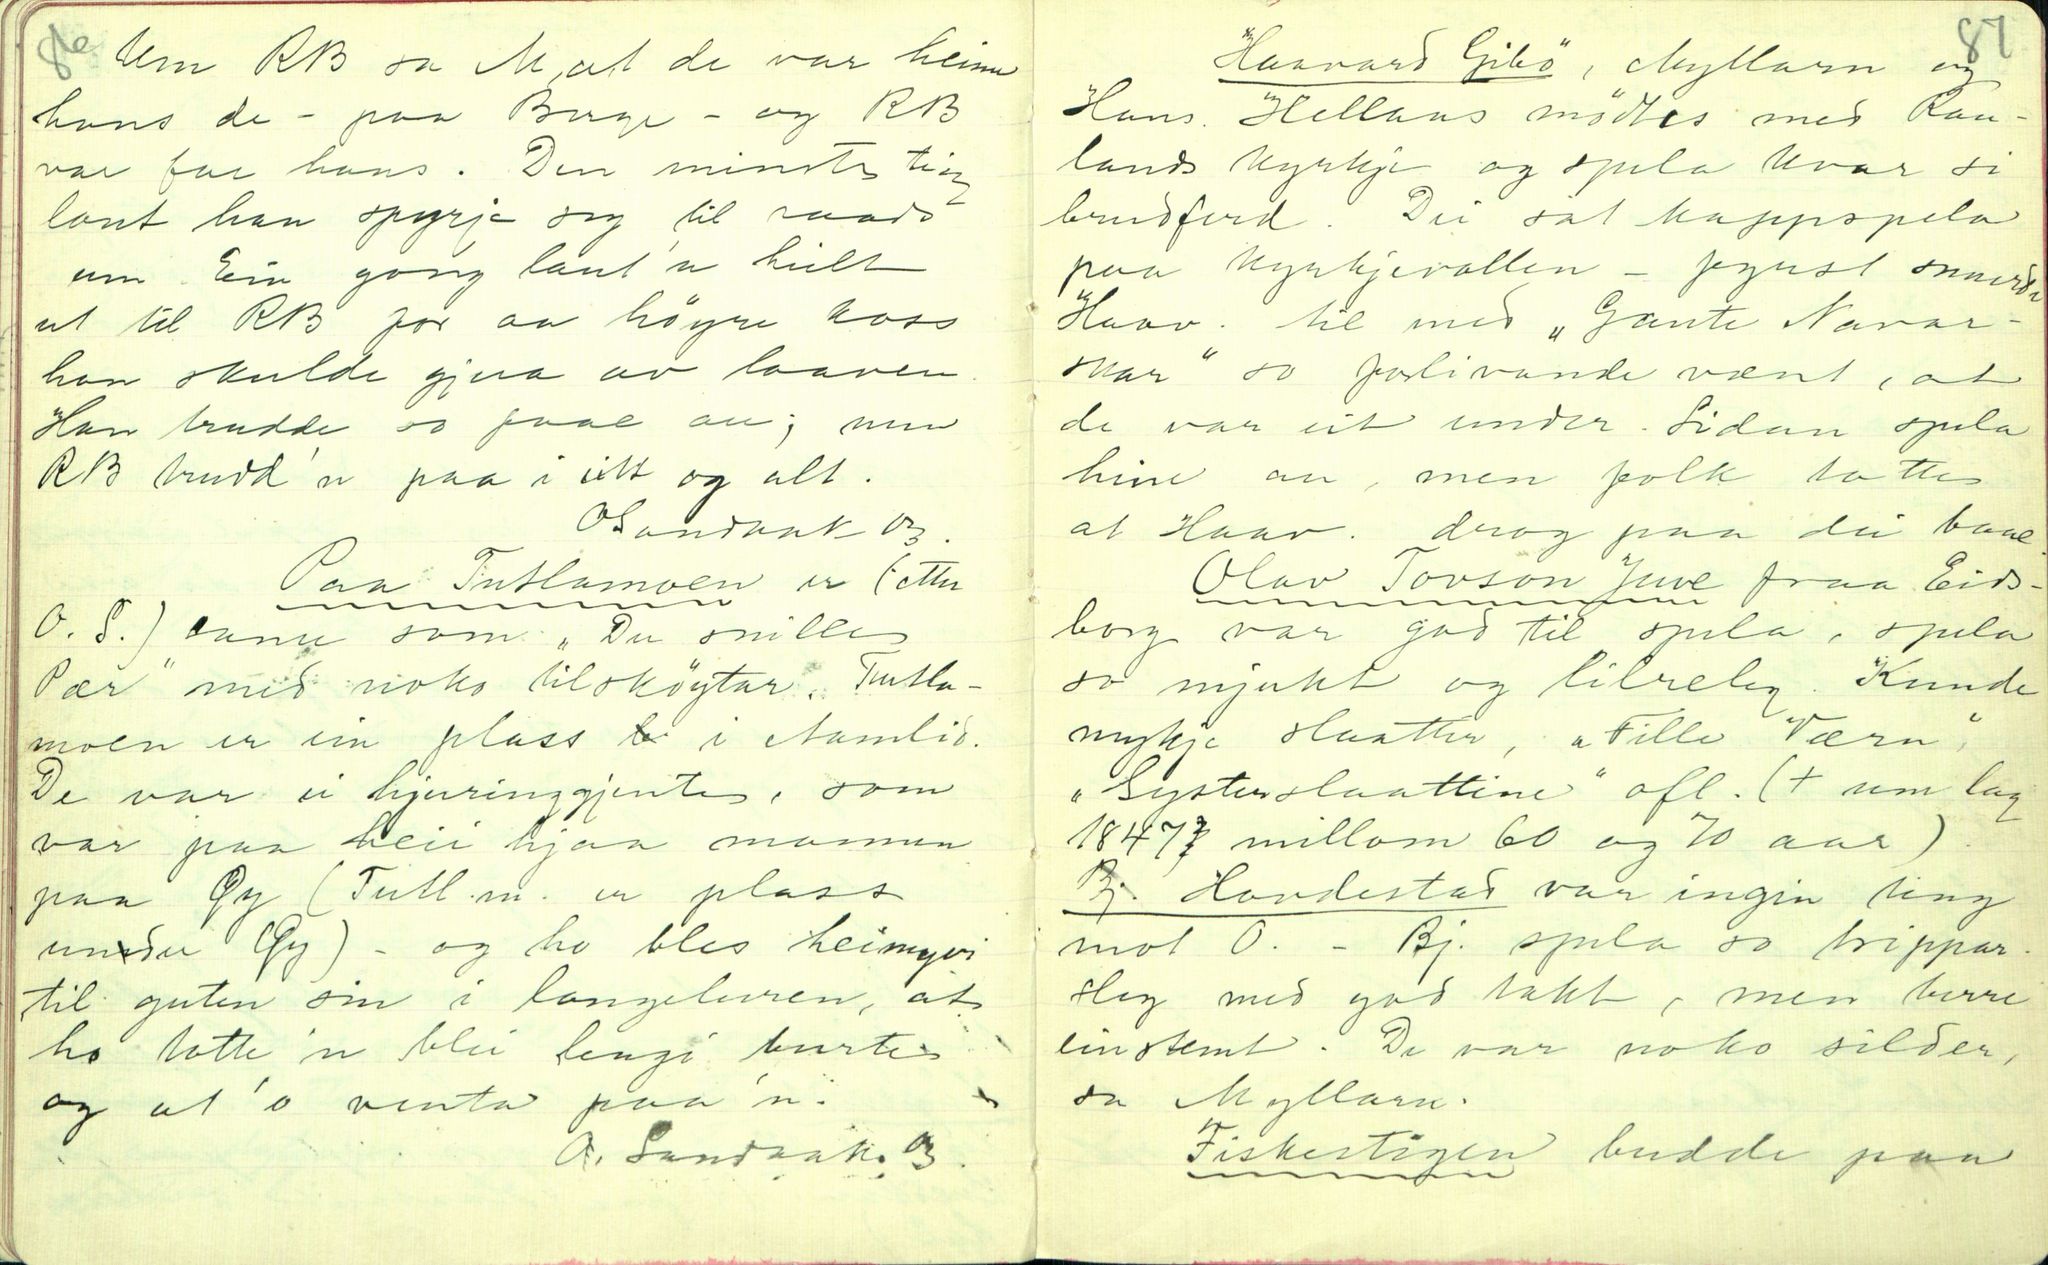 86
Um RB sa M, at de var heime
hans de - paa Berge - og RB
var far hans. Den minste ting
laut han spyrje seg til raads
um. Ein gong laut'n heilt
ut til RB for aa höyre koss
han skulde gjera av laaven.
Han trudde so faae au; men
RB trudd'n paa i eitt og alt.
OSandaak og.
Paa Tutlamoen er (etter
O. S.) sama som „Du snille
Pær" med noko tilsköytar. Tutla-
moen er ein plass i Aamlid.
De var ei hjuringgjente, som
var paa heii hjaa mannen
paa Öy (Tutl.m. er plass
under Öy) - og ho bles heimyvi
til guten sin i langeluren, at
ho totte'n blei lengi burte
og at'o venta paa'n.
O. Sandaak. og.
87
Haavard Gibö, Myllarn og
Hans Hellaas mödtes med Rau-
lands kyrkje og spela kvar si
brudferd. Dei sat kappspela
paa kyrkjevollen - fyrst snaerde
Haav. til med „Gante Navar-
skar" so forlivande vænt, at
de var eit under. Sidan spela
hine au, men folk totte
at Haav. drog paa dei baae.
Olav Tovson Juve fraa Eids-
borg var god til spela, spela
so mjukt og lilreleg. Kunde
mykje slaatter, „Fille Værn",
„Systerslaattine" ofl. († um lag
1847 millom 60 og 70 aar)
Bj. Hovdestad var ingin ting
mot O. - Bj. spela so trippar-
sleg med god takt, men berre
einstemt. De var noko silder,
sa Myllarn.
Fiskestigen budde paa